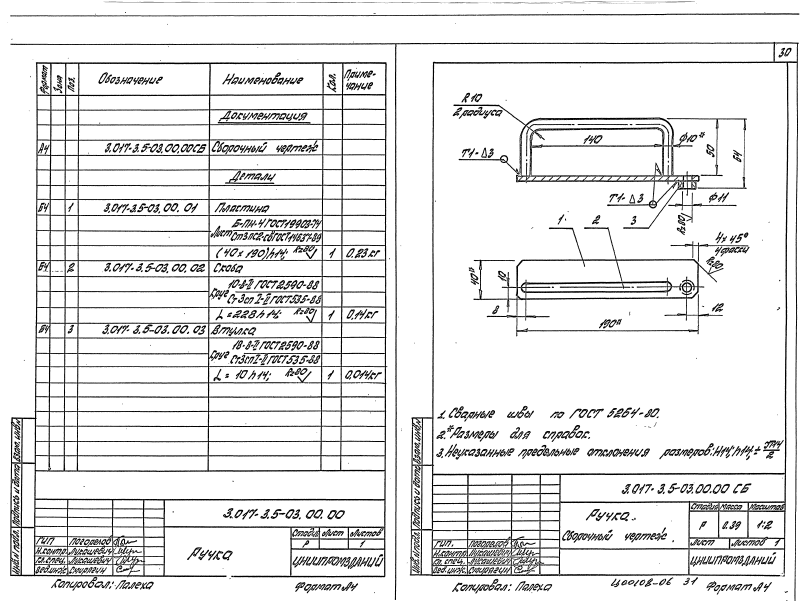 30
Формат
Зона
Поз.
Обозначение
Наименование
Кол.
Примечание
Документация
А4 3.017-3.5-03.00.00СБ Сборочный чертеж
Детали
Б4 1 3.017-3.5-03.00.01 Пластина
Лист Б-ПН-4 ГОСТ 19903-74
Ст3пс2-св ГОСТ 14637-89
(40×190)h14; Rz80 1 0,23кг
Б4 2 3.017-3.5-03.00.02 Скоба
Круг 10-В-II ГОСТ 2590-88
Ст3сп I-II ГОСТ 535-88
L=228h14; Rz80 1 0,14кг
Б4 3 3.017-3.5-03.00.03 Втулка
Круг 18-В-II ГОСТ 2590-88
Ст3сп I-II ГОСТ 535-88
L=10h14; Rz80 1 0,014кг
Взам. инв.№
Подпись и дата
Инв.№ подл.
3.017-3.5-03.00.00
Ручка
Стадия Лист Листов
Р 1
ЦНИИПРОМЗДАНИЙ
ГИП
Н.контр. Лукашевич
Гл. спец. Лукашевич
Вед.инж.
Копировал: Палеха Формат А4
R10
2 радиуса
140
ф10*
50
64
Т1-Δ3
Т1-Δ3
3
ф11
Rz80
1
2
4×45°
4 фаски
Rz80
40*
10
8
12
190*
1. Сварные швы по ГОСТ 5264-80.
2.* Размеры для справок.
3. Неуказанные предельные отклонения размеров: H14, h14, ± IT14/2
Взам. инв.№
Подпись и дата
Инв.№ подл.
3.017-3.5-03.00.00 СБ
Ручка.
Сборочный чертеж.
Стадия Масса Масштаб
Р 0.39 1:2
Лист Листов 1
ЦНИИПРОМЗДАНИЙ
ГИП.
Н.контр. Лукашевич
Гл. спец. Лукашевич
Вед.инж.
Копировал: Палеха Ц00108-06 31 Формат А4